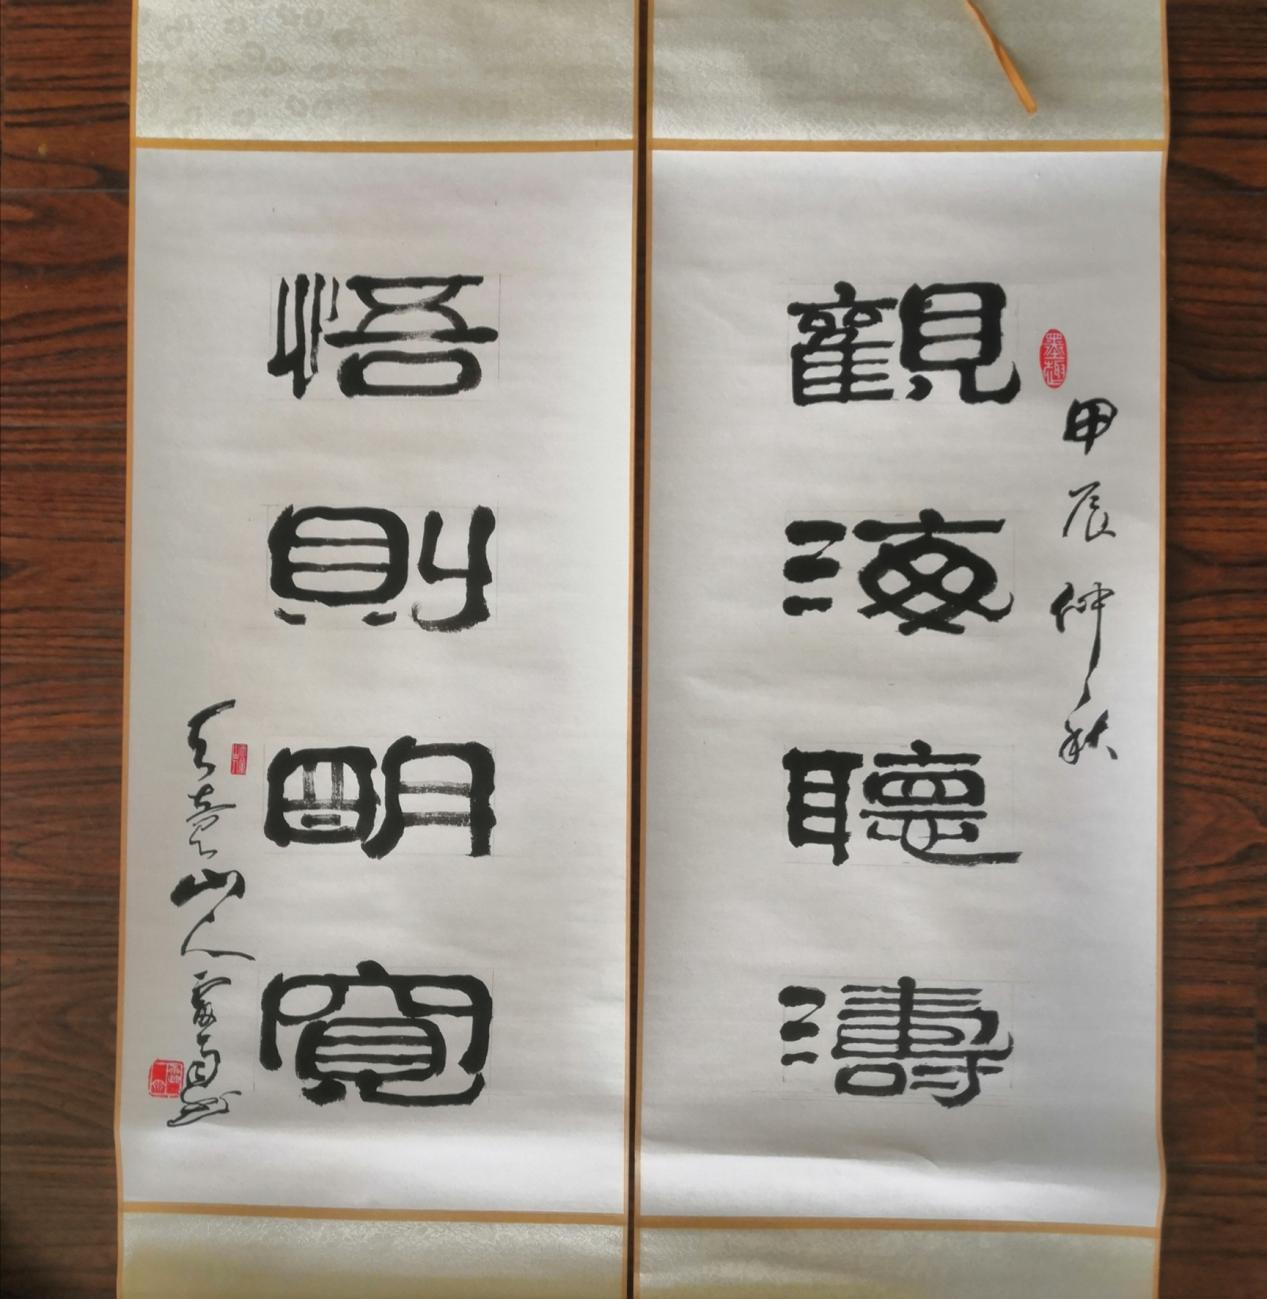 觀海聽濤
甲辰仲秋
墨趣
悟則明寬
山人